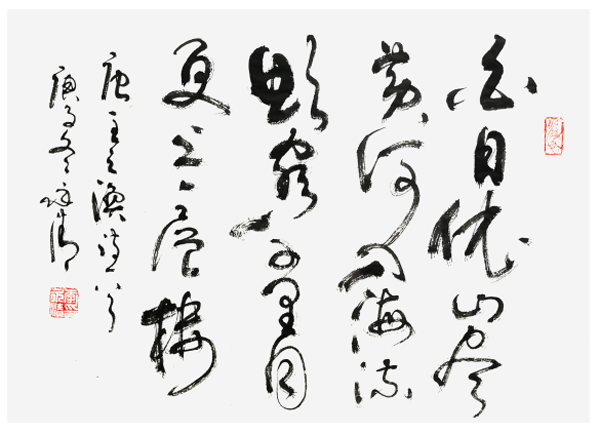 白日依山尽
黄河入海流
欲穷千里目
更上一层楼
唐王之涣诗一首
庚子冬